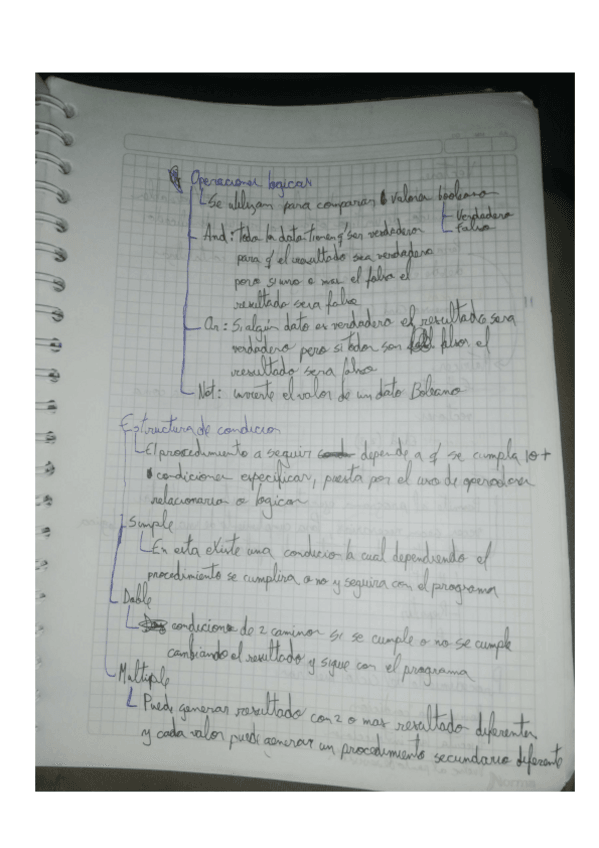 Operaciones logicas
Se utilizan para comparar valores booleano
Verdadero
Falso
And: Todo los datos tienen q' ser verdadero
para q' el resultado sea verdadero
pero si uno o mas el falso el
resultado sera falso
Or: Si algún dato es verdadero el resultado sera
verdadero pero si todos son falsos el
resultado sera falso
Not: invierte el valor de un dato Boleano
Estructura de condicion
El procedimiento a seguir depende a q' se cumpla 1 o +
condiciones especificas, puesta por el uso de operadores
relacionarios o logicos
Simple
En esta existe una condicio la cual dependiendo el
procedimiento se cumplira o no y seguira con el programa
Doble
condicione de 2 caminos si se cumple o no se cumple
cambiando el resultado y sigue con el programa
Multiple
Puede generar resultado con 2 o mas resultado diferentes
y cada valor puede generar un procedimiento secundario diferente